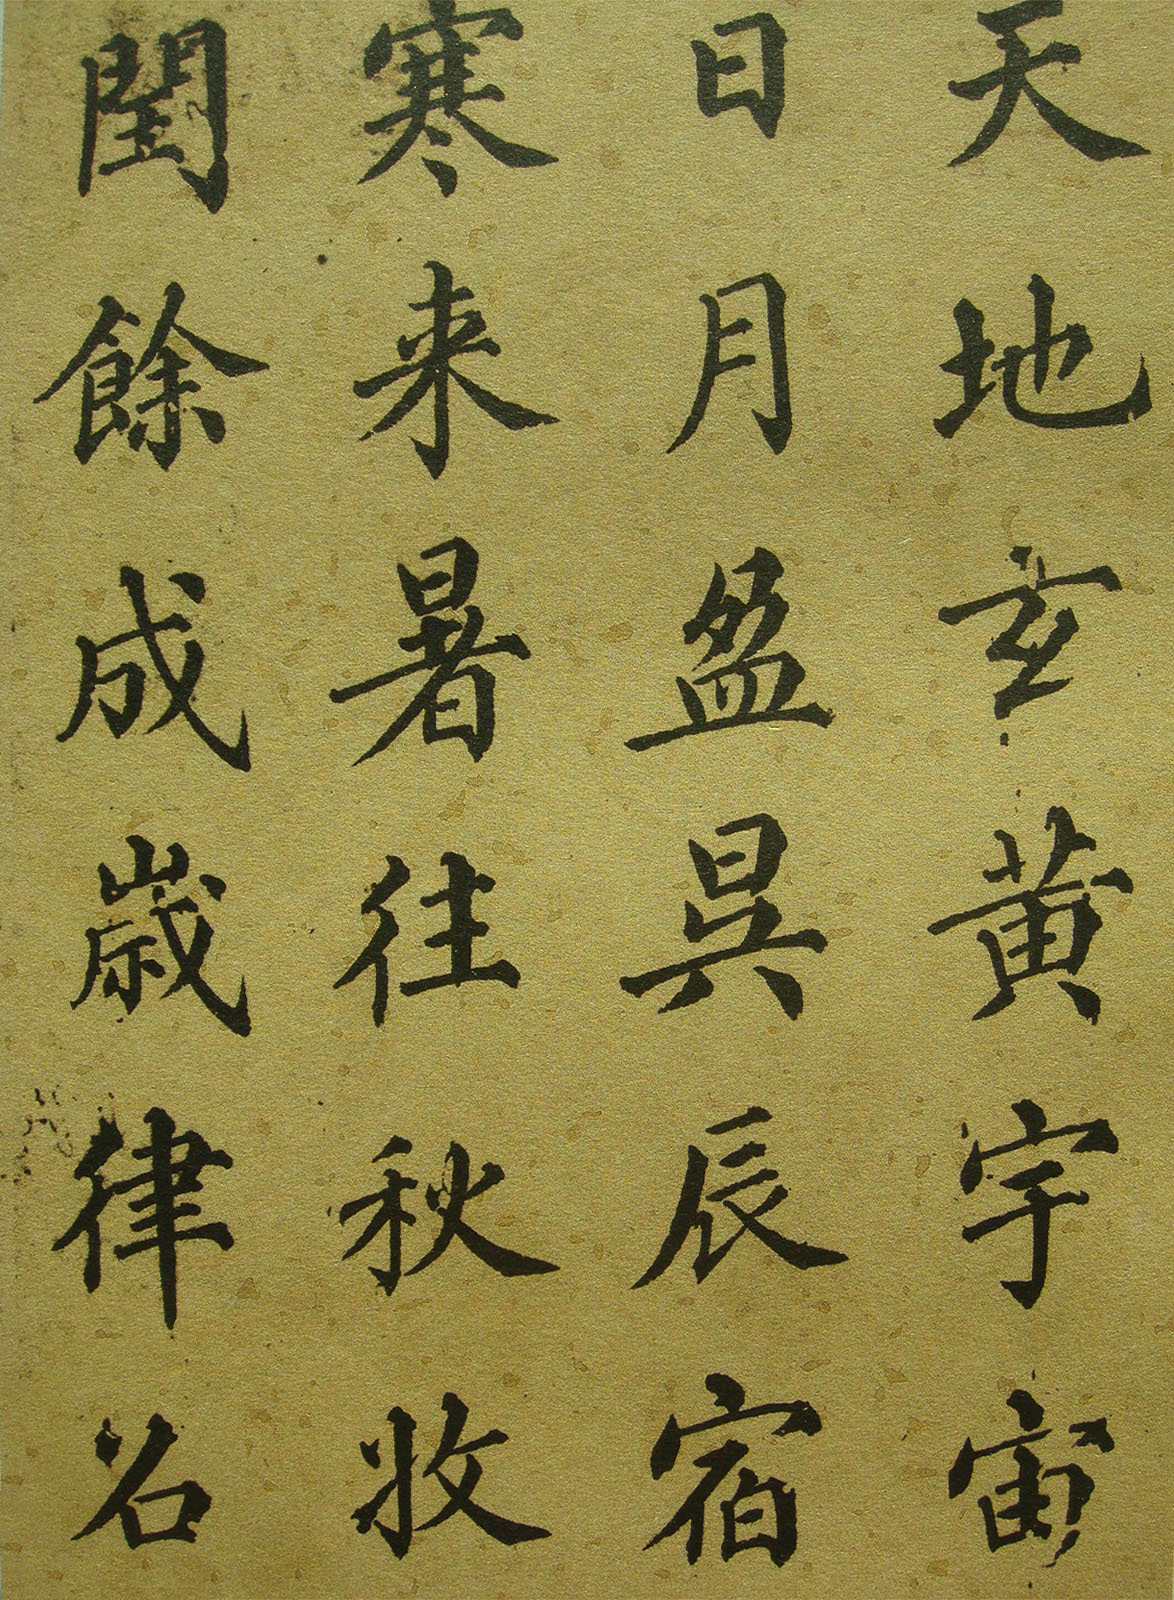 天地玄黄宇宙
日月盈昃辰宿
寒来暑往秋收
閏餘成歲律召